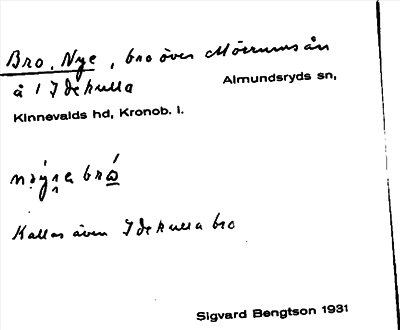 Bro, Nye, bro över Mörrumsån
å 1 Idekulla Almundsryds sn,
Kinnevalds hd, Kronob. l.
Kallas även Idekulla bro
Sigvard Bengtson 1931